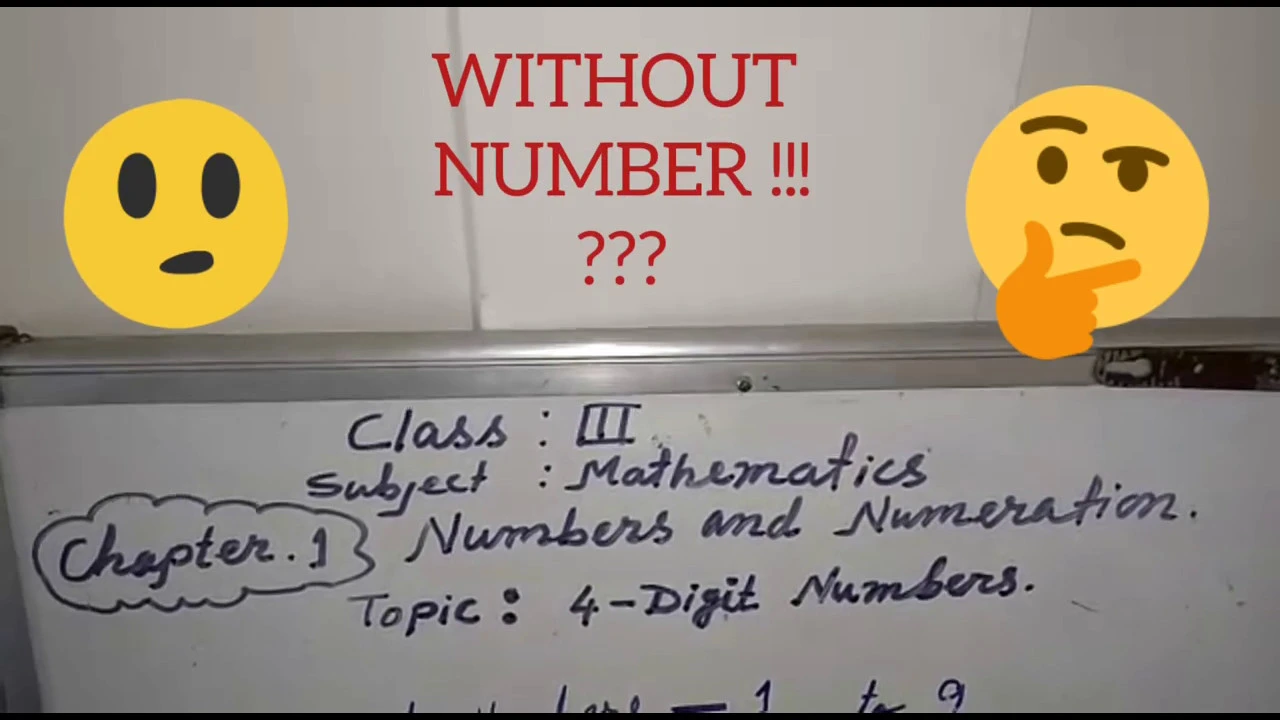 WITHOUT
NUMBER !!!
???
Class : III
Subject : Mathematics
Chapter. 1 Numbers and Numeration.
Topic : 4-Digit Numbers.
— 1 to 9